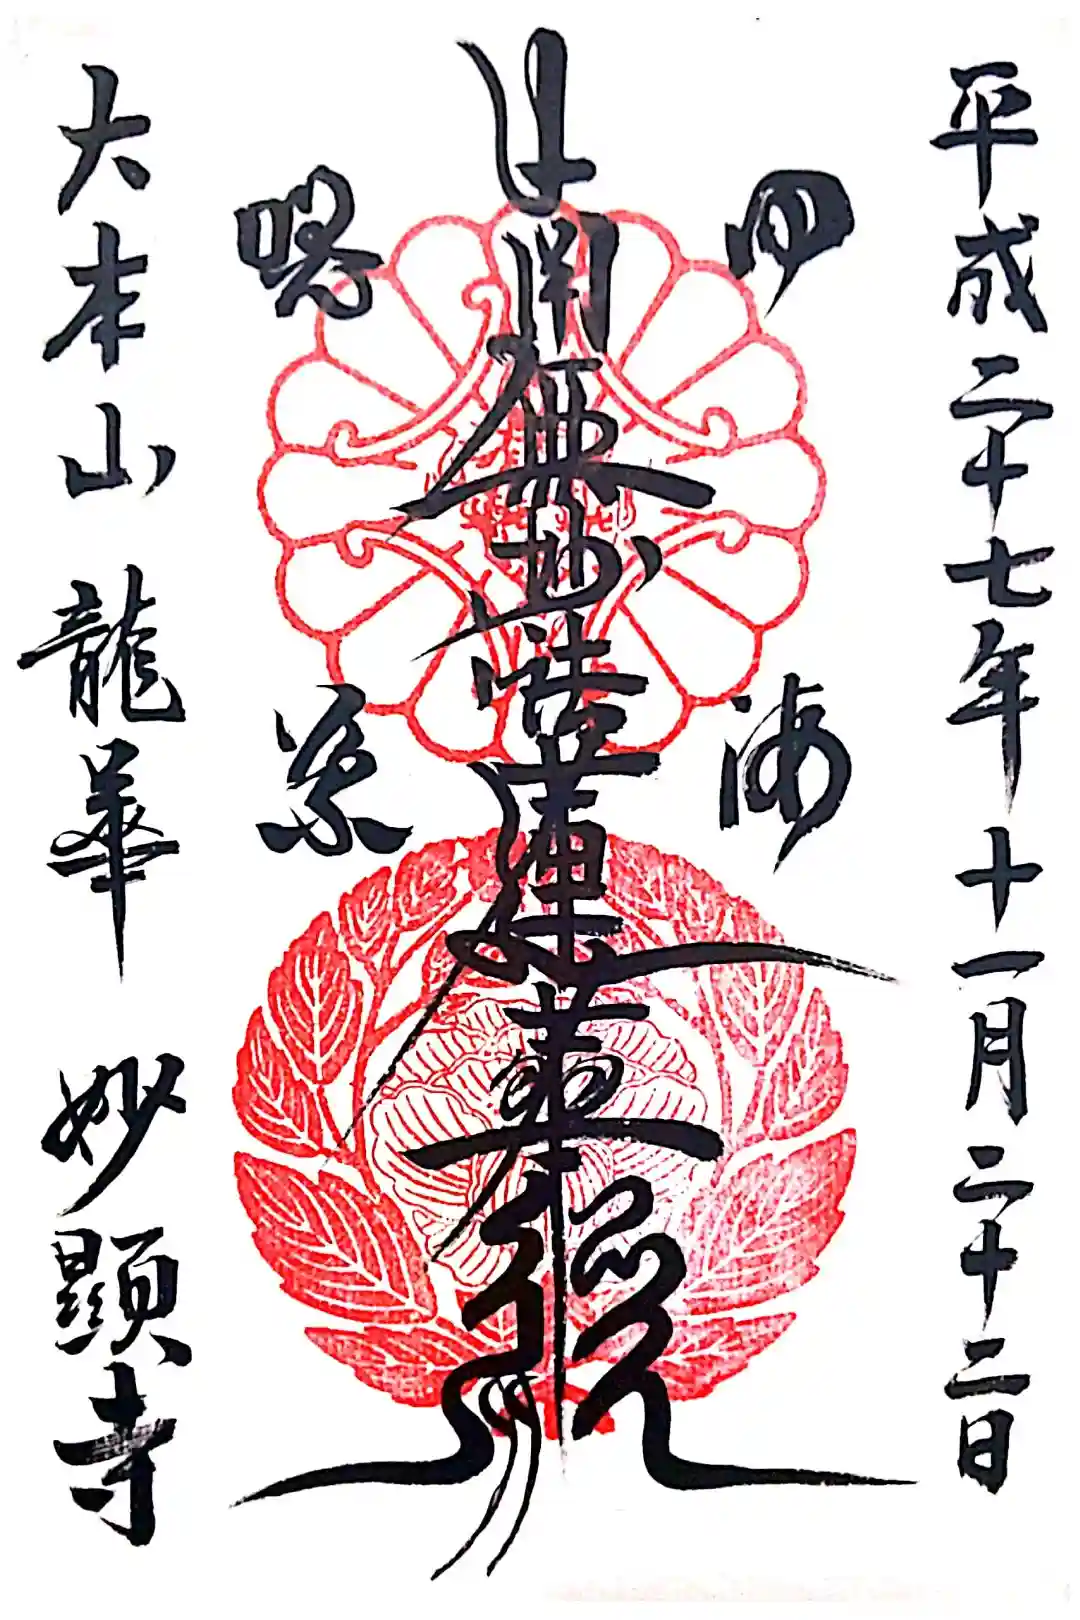 平成二十七年十一月二十二日
四海
南無妙法蓮華経
唱導
大本山龍華妙顕寺